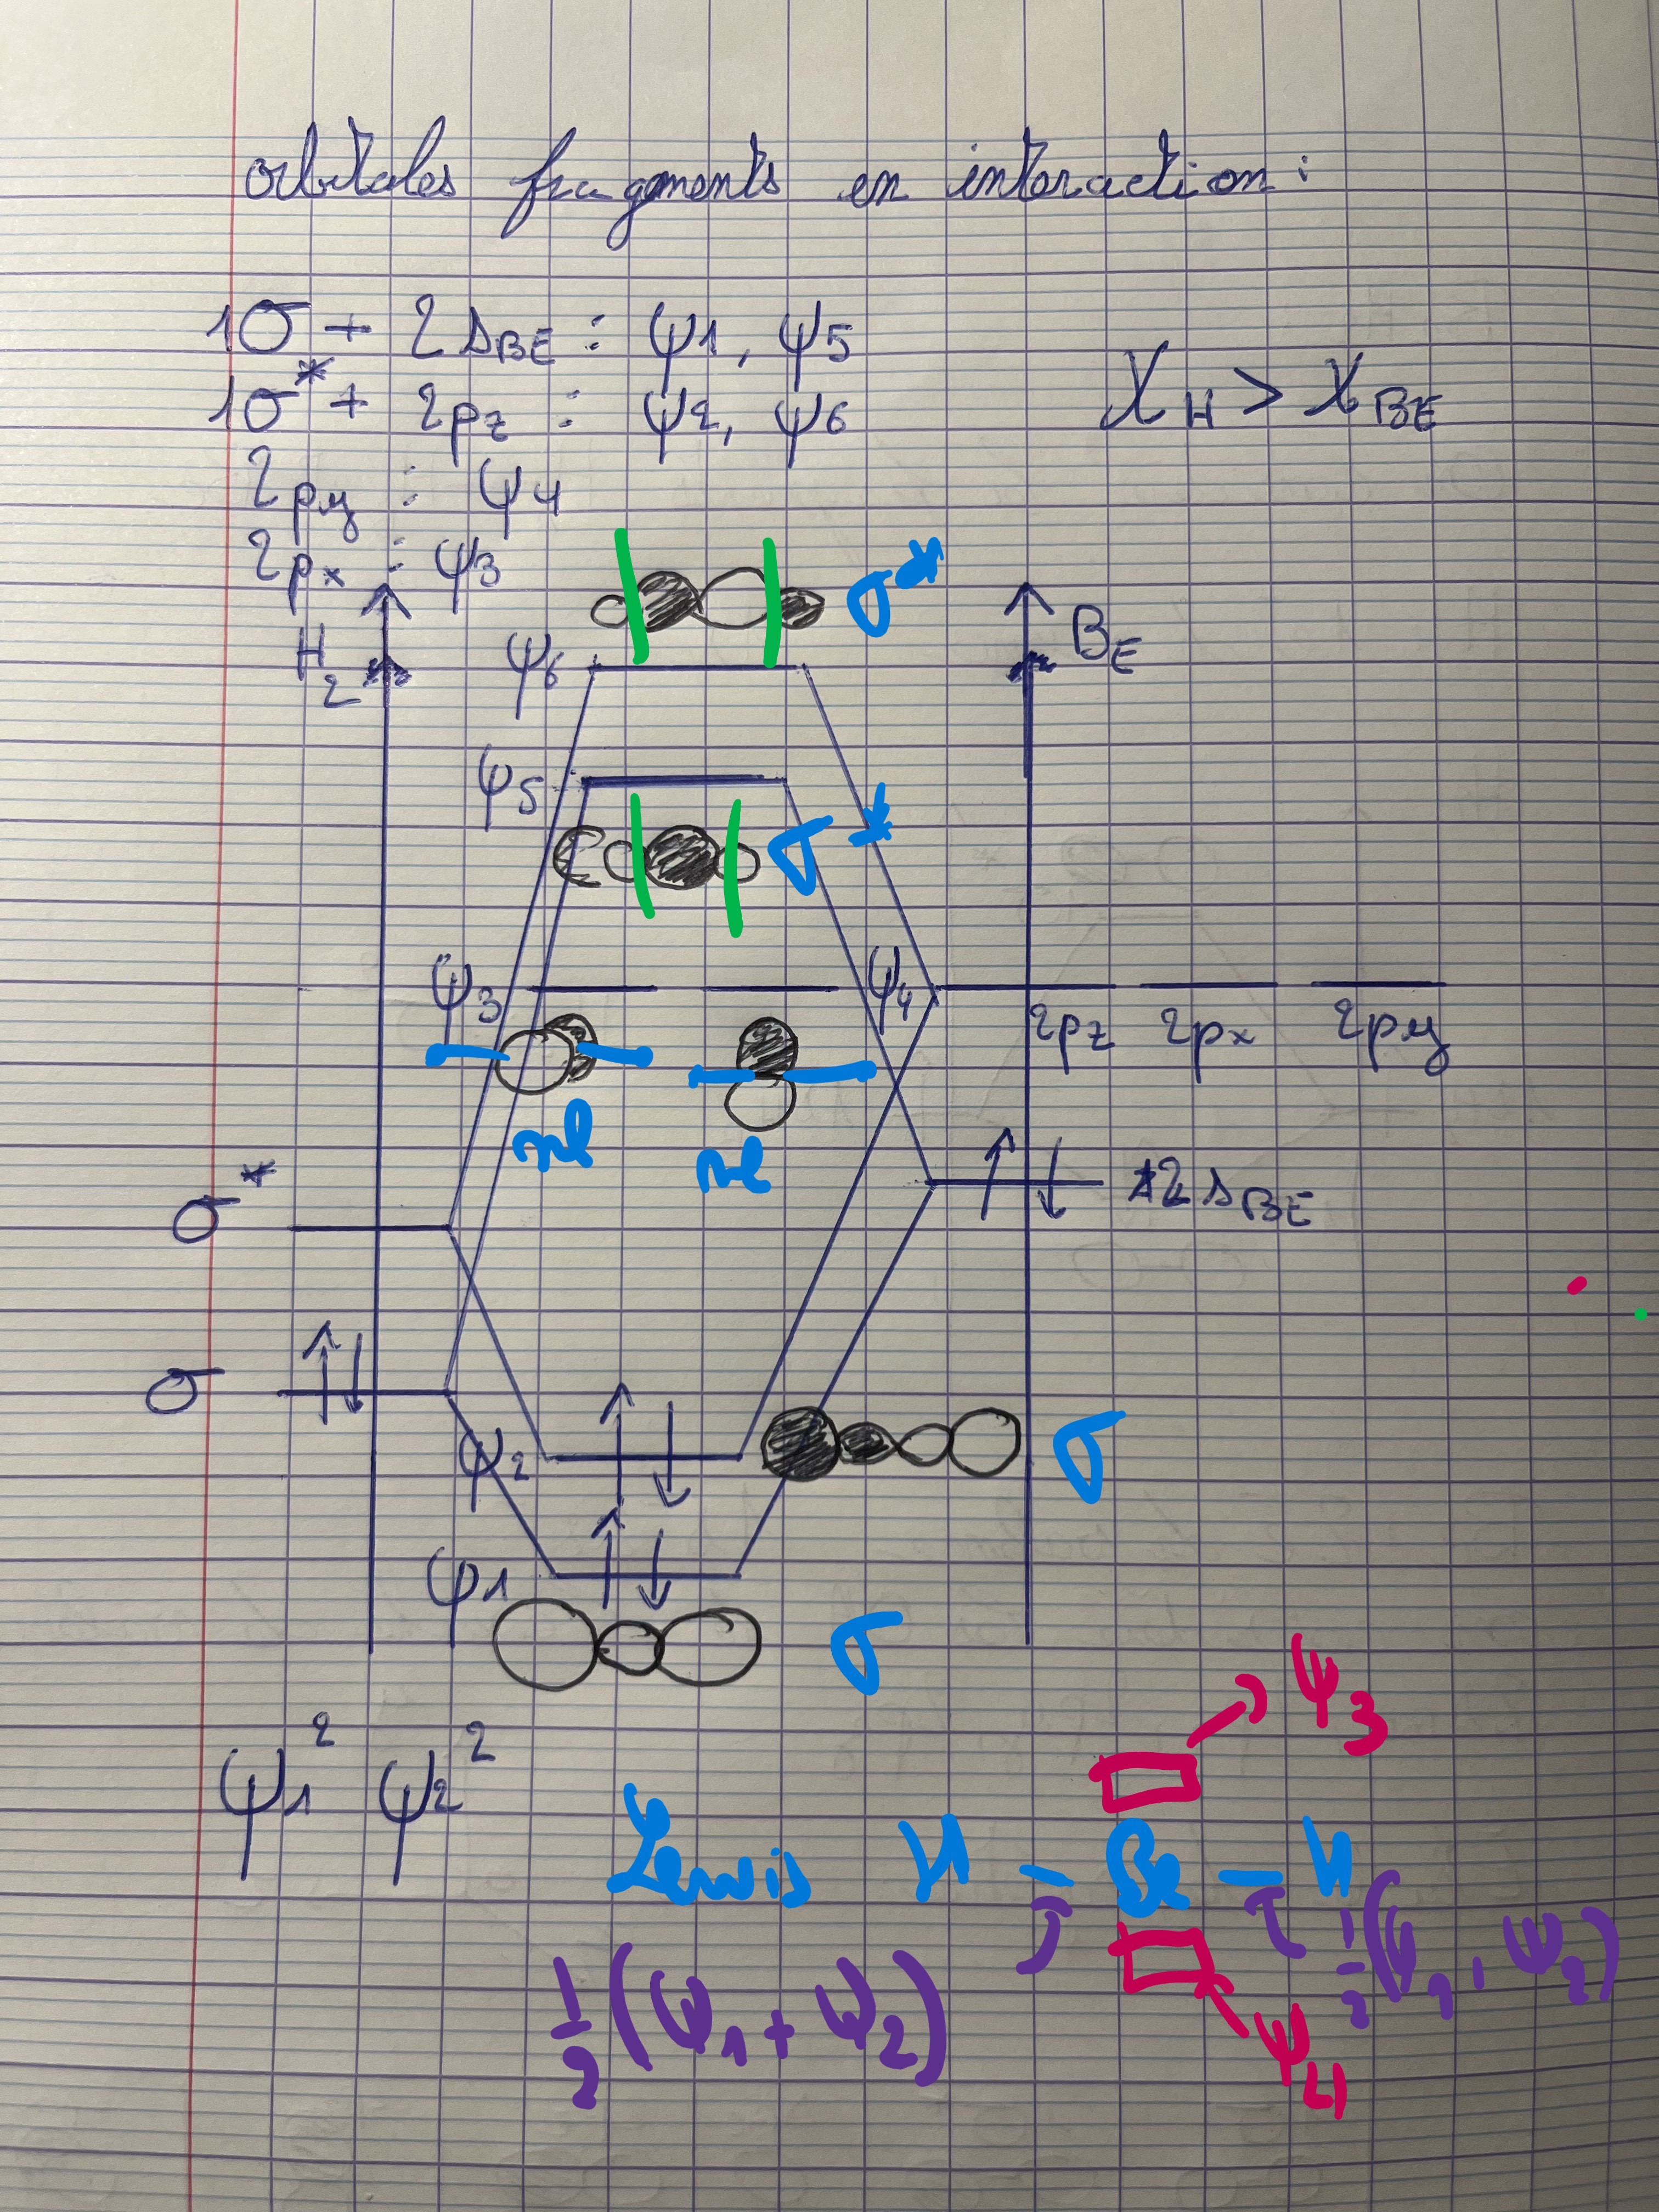 orbitales fragments en interaction :
1σ + 2sBE : ψ1, ψ5
1σ* + 2pz : ψ2, ψ6
χH > χBE
2py : ψ4
2px : ψ3
σ*
H2
ψ6
BE
ψ5
σ*
ψ3
ψ4
2pz 2px 2py
nl
nl
σ*
2sBE
σ
ψ2
σ
φ1
σ
ψ3
ψ1² ψ2²
Lewis H - Be - H
½(ψ1 + ψ2)
½(ψ1, ψ2)
ψ4